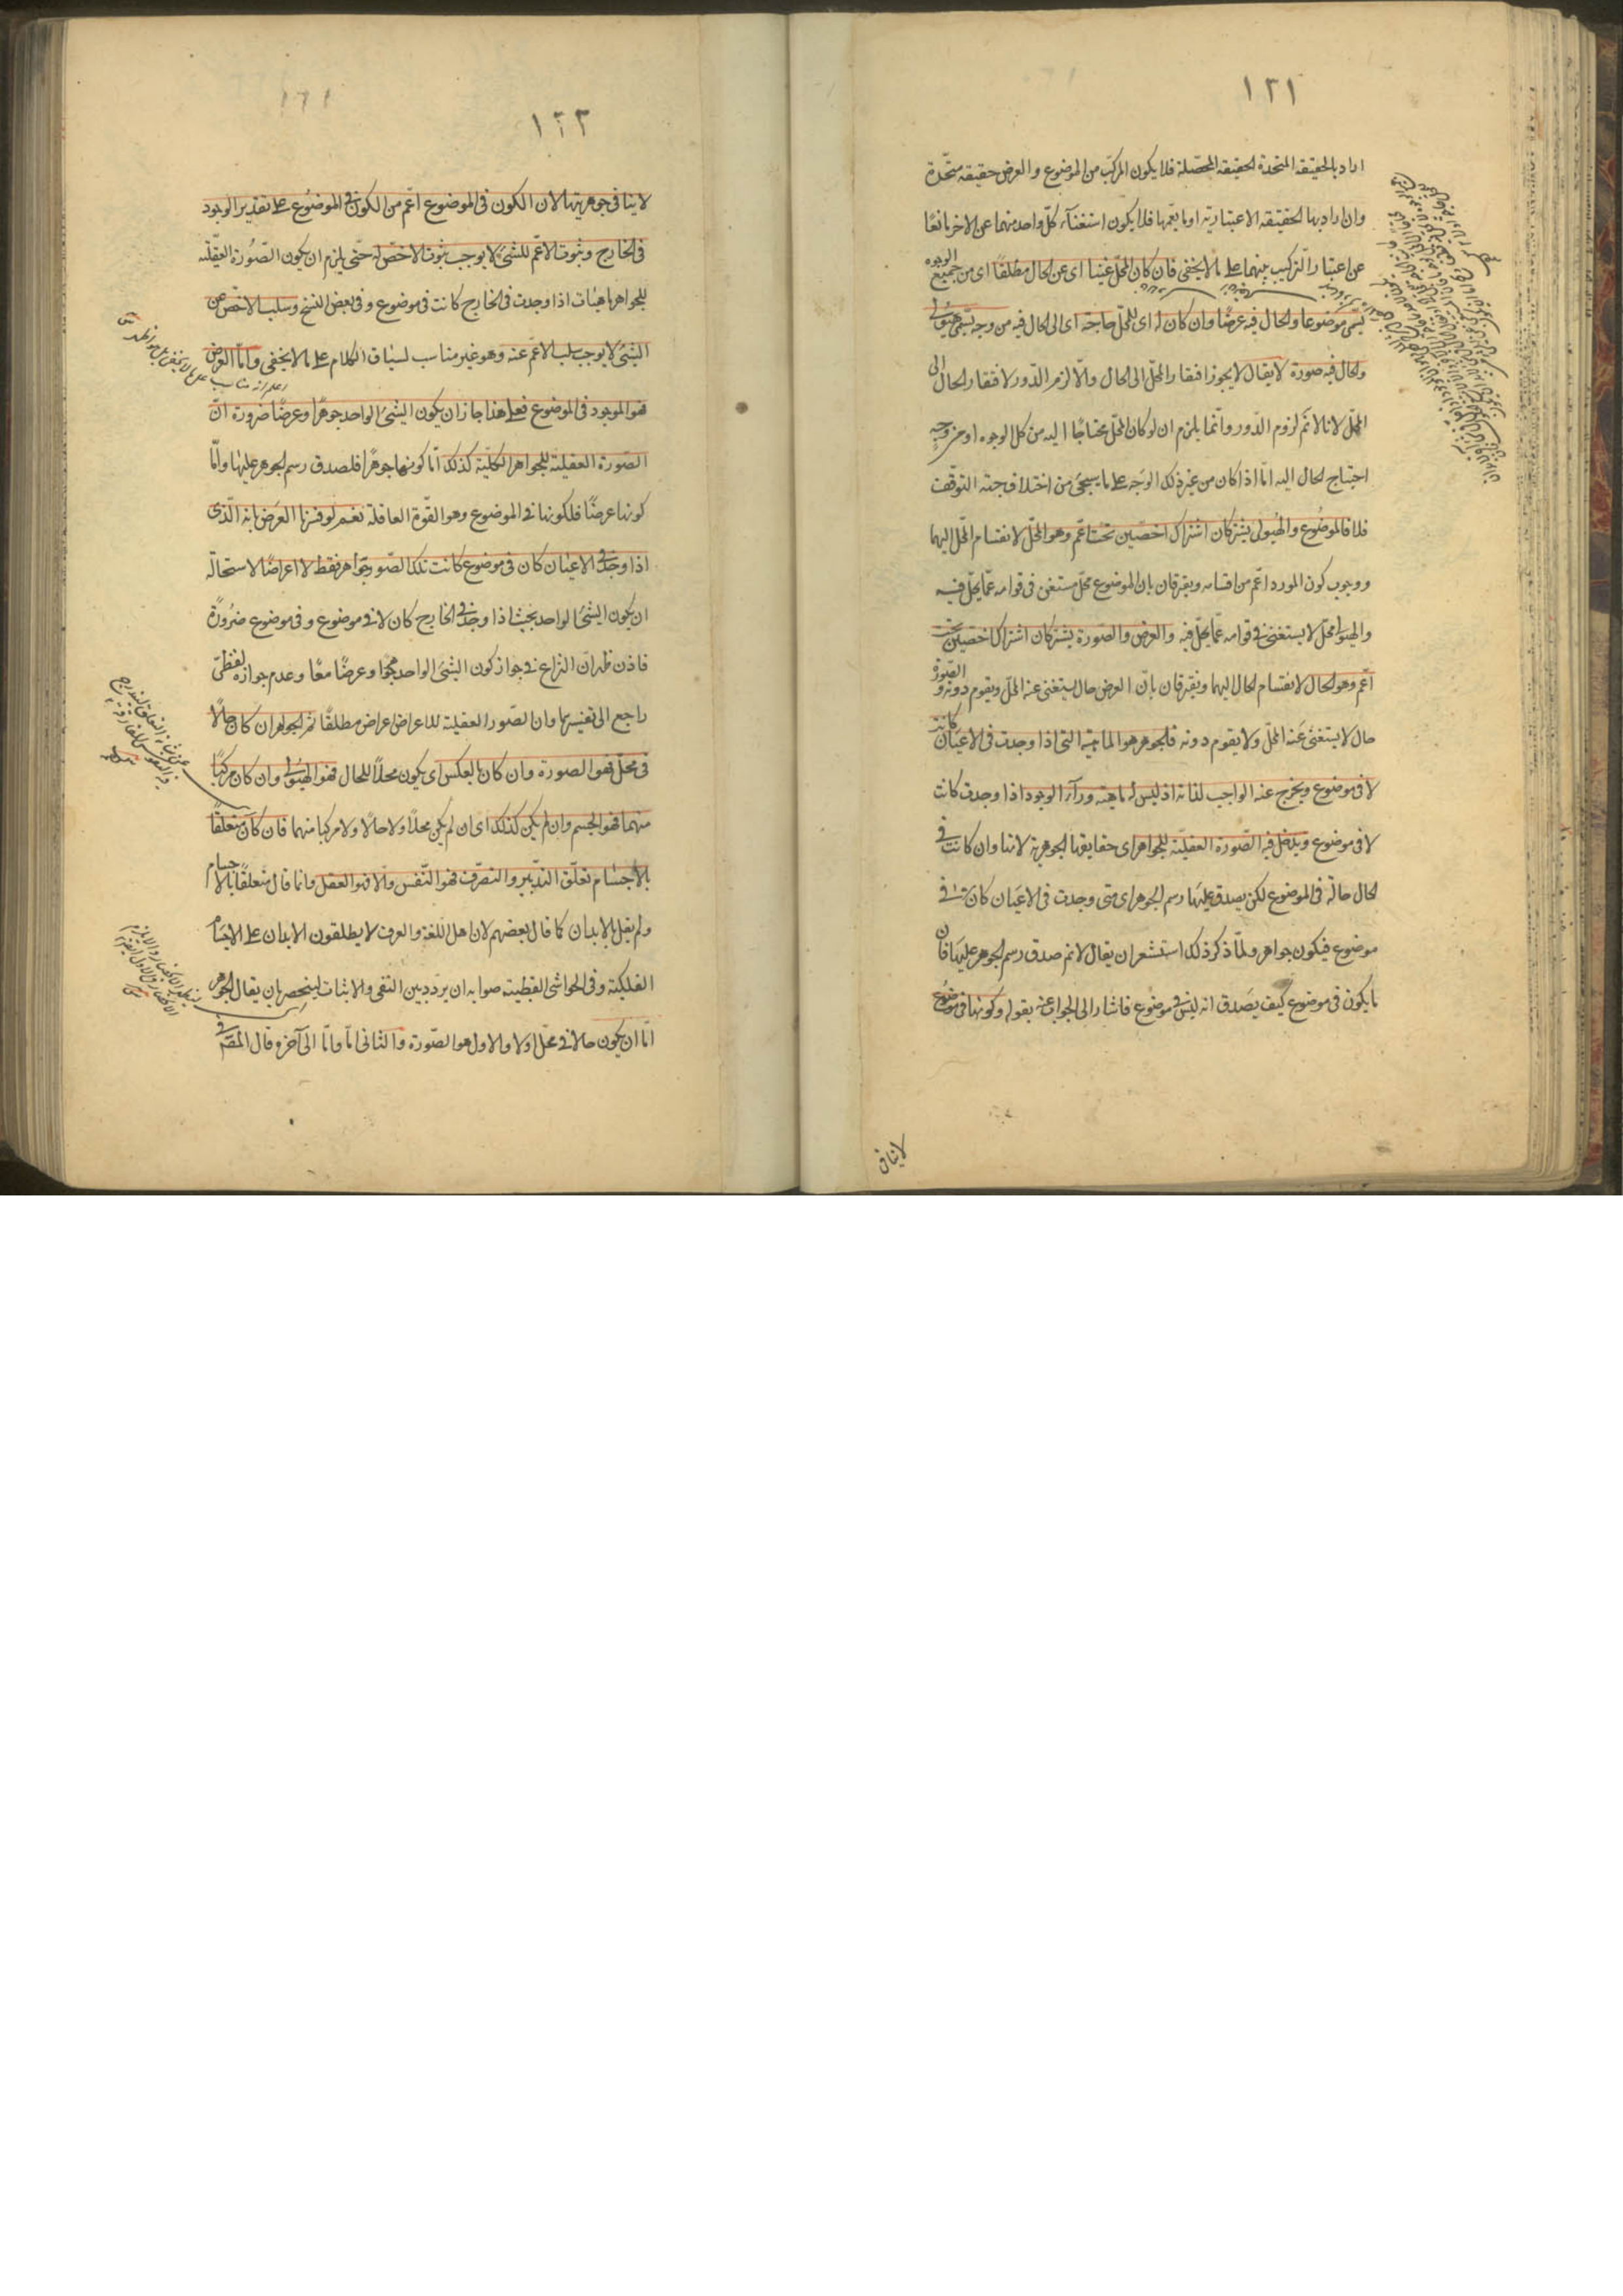 ١٢١
اراد بالحقيقة المتحدة الحقيقة المحصلة فلا يكون المركب من الموضوع والعرض حقيقة متحدة
وان اراد بها الحقيقة الاعتبارية او ما يعمها فلا يكون استغناء كل واحد منهما عن الاخر مانعا
عن اعتبار التركيب بينهما على ما لا يخفى فان كان المحل غنيا اى عن الحال مطلقا اى من جميع الوجوه
يسمى موضوعا والحال فيه عرضا وان كان له اى للمحل حاجة اى الى الحال فيه من وجه يسمى هيولى
والحال فيه صورة لا يقال لا يجوز افتقار المحل الى الحال والا لزم الدور لافتقار الحال الى
المحل لانا لا نم لزوم الدور وانما يلزم ان لو كان المحل محتاجا اليه من كل الوجوه او من وجه
احتياج الحال اليه اما اذا كان من غير ذلك الوجه على ما سيجئ من اختلاف جهة التوقف
فلا فالموضوع والهيولى يشتركان اشتراك اخصين تحت اعم وهو المحل لانقسام المحل اليهما
ووجوب كون المورد اعم من اقسامه ويفترقان بان الموضوع محل مستغن فى قوامه عما يحل فيه
والهيولى محل لا يستغنى فى قوامه عما يحل فيه والعرض والصورة يشتركان اشتراك اخصين تحت
اعم وهو الحال لانقسام الحال اليهما ويفترقان بان العرض حال يستغنى عنه المحل ويقوم دونه والصورة
حال لا يستغنى عنه المحل ولا يقوم دونه فالجوهر هو الماهية التى اذا وجدت فى الاعيان كانت
لا فى موضوع ويخرج عنه الواجب لذاته اذ ليس له ماهية وراء الوجود اذا وجدت كانت
لا فى موضوع ويدخل فيه الصورة العقلية للجواهر اى حقايقها الجوهرية لانها وان كانت فى
الحال حالة فى الموضوع لكن يصدق عليها رسم الجوهر اى متى وجدت فى الاعيان كانت لا فى
موضوع فيكون جواهر ولما ذكر ذلك استشعر ان يقال لا نم صدق رسم الجوهر عليها فان
ما يكون فى موضوع كيف يصدق انه ليس فى موضوع فاشار الى الجواب عنه بقوله وكونها فى موضوع
لاينافى
١٢٢
لا ينافى جوهريتها لان الكون فى الموضوع اعم من الكون فى الموضوع على تقدير الوجود
فى الخارج وثبوت الاعم للشئ لا يوجب ثبوت الاخص له حتى يلزم ان يكون الصورة العقلية
للجواهر ماهيات اذا وجدت فى الخارج كانت فى موضوع وفى بعض النسخ وسلب الاخص عن
الشئ لا يوجب سلب الاعم عنه وهو غير مناسب لسياق الكلام على ما لا يخفى واما العرض
فهو الموجود فى الموضوع فعلى هذا جاز ان يكون الشئ الواحد جوهرا وعرضا ضرورة ان
الصورة العقلية للجواهر الكلية كذلك اما كونها جوهرا فلصدق رسم الجوهر عليها واما
كونها عرضا فلكونها فى الموضوع وهو القوة العاقلة نعم لو فسرنا العرض بانه الذى
اذا وجد فى الاعيان كان فى موضوع كانت تلك الصور جواهر فقط لا اعراضا لاستحالة
ان يكون الشئ الواحد بحيث اذا وجد فى الخارج كان لا فى موضوع وفى موضوع ضرورة
فاذن ظهر ان النزاع فى جواز كون الشئ الواحد جوهرا وعرضا معا وعدم جوازه لفظى
راجع الى تفسيرها وان الصور العقلية للاعراض اعراض مطلقا ثم الجوهر ان كان حالا
فى محل فهو الصورة وان كان بالعكس اى يكون محلا للحال فهو الهيولى وان كان مركبا
منهما فهو الجسم وان لم يكن كذلك اى ان لم يكن محلا ولا حالا ولا مركبا منهما فان كان متعلقا
بالاجسام تعلق التدبير والتصرف فهو النفس والا فهو العقل وانما قال متعلقا بالاجسام
ولم يقل بالابدان كما قال بعضهم لان اهل اللغة والعرف لا يطلقون الابدان على الاجسام
الفلكية وفى الحواشى القطبية صوابه ان يردد بين النفى والاثبات لينحصر بان يقال الجوهر
اما ان يكون حالا فى محل اولا والاول هو الصورة والثانى اما واما الى آخره وقال المص فى